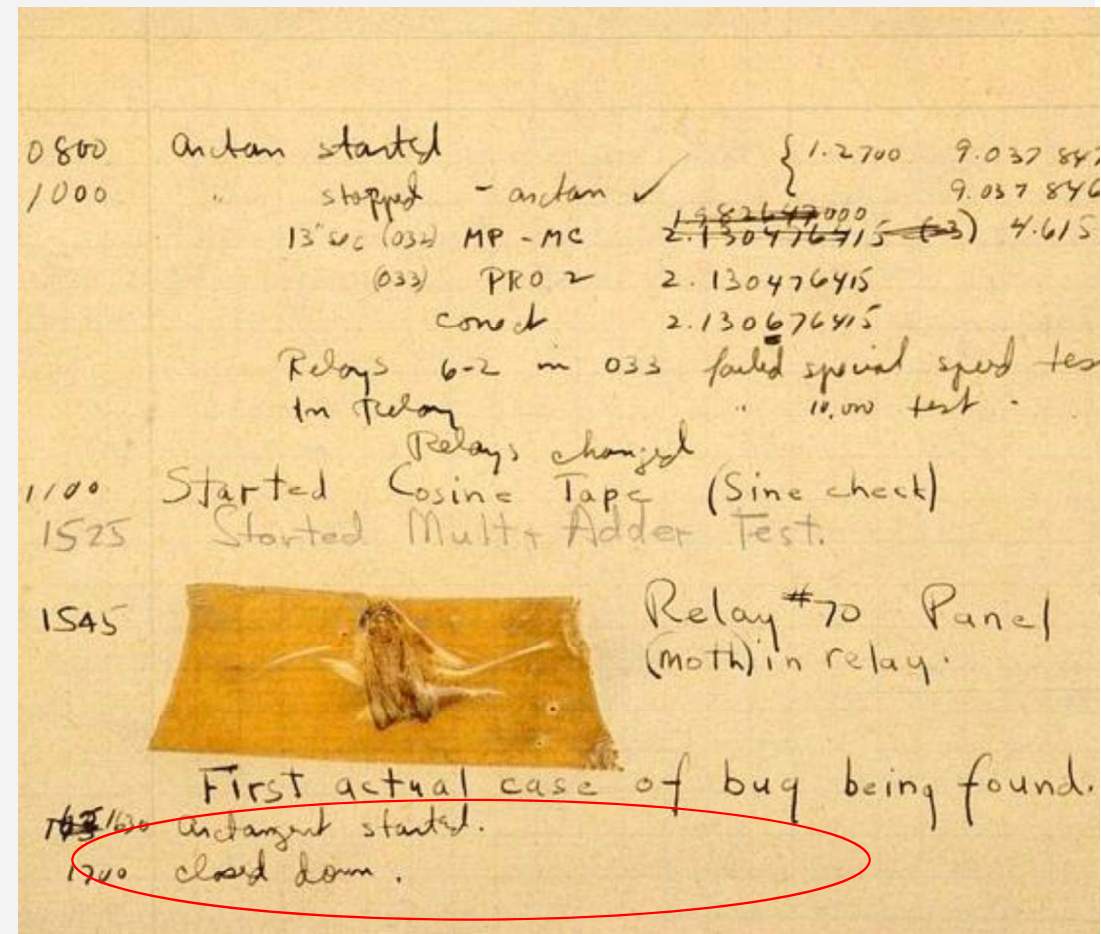 0800 arctan started { 1.2700 9.037 847
1000 " stopped - arctan ✓ 9.037 846
13"sec (032) MP - MC 1.982647000 2.130476415 (-3) 4.615
(033) PRO 2 2.130476415
conect 2.130676415
Relays 6-2 in 033 failed special speed tes
In Relay " 10,000 test .
Relays changed
1100 Started Cosine Tape (Sine check)
1525 Started Mult + Adder Test.
1545 Relay #70 Panel
(moth) in relay.
First actual case of bug being found.
1630 arctangent started.
1700 closed down.